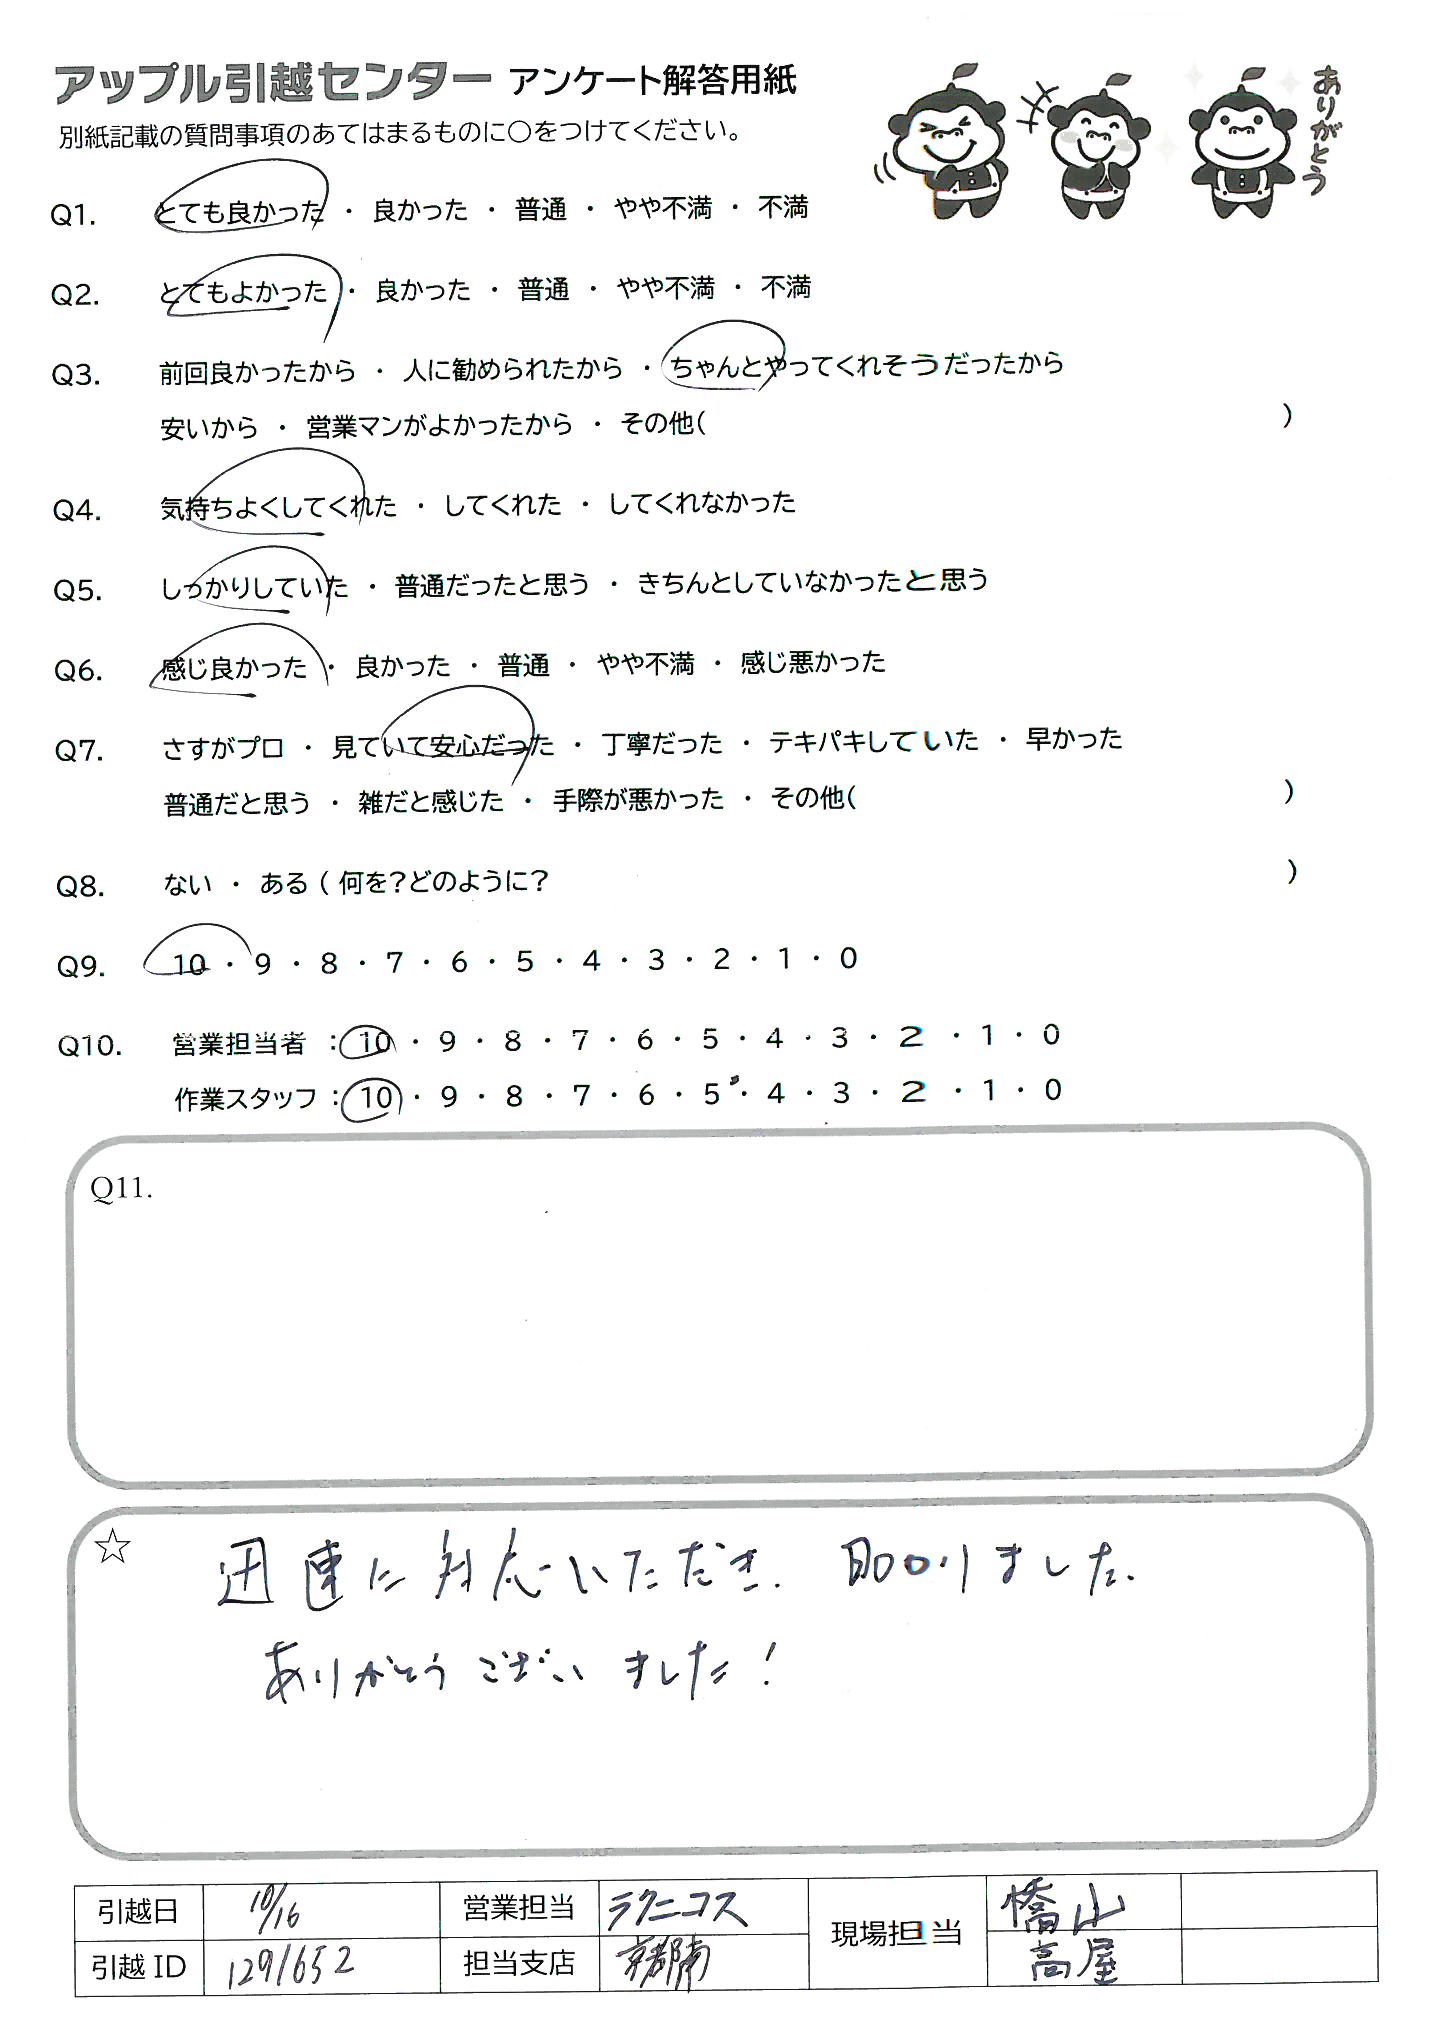 アップル引越センター アンケート解答用紙
別紙記載の質問事項のあてはまるものに○をつけてください。
ありがとう
Q1. とても良かった ・ 良かった ・ 普通 ・ やや不満 ・ 不満
Q2. とてもよかった ・ 良かった ・ 普通 ・ やや不満 ・ 不満
Q3. 前回良かったから ・ 人に勧められたから ・ ちゃんとやってくれそうだったから
安いから ・ 営業マンがよかったから ・ その他( )
Q4. 気持ちよくしてくれた ・ してくれた ・ してくれなかった
Q5. しっかりしていた ・ 普通だったと思う ・ きちんとしていなかったと思う
Q6. 感じ良かった ・ 良かった ・ 普通 ・ やや不満 ・ 感じ悪かった
Q7. さすがプロ ・ 見ていて安心だった ・ 丁寧だった ・ テキパキしていた ・ 早かった
普通だと思う ・ 雑だと感じた ・ 手際が悪かった ・ その他( )
Q8. ない ・ ある ( 何を?どのように? )
Q9. 10 ・ 9 ・ 8 ・ 7 ・ 6 ・ 5 ・ 4 ・ 3 ・ 2 ・ 1 ・ 0
Q10. 営業担当者 : 10 ・ 9 ・ 8 ・ 7 ・ 6 ・ 5 ・ 4 ・ 3 ・ 2 ・ 1 ・ 0
作業スタッフ : 10 ・ 9 ・ 8 ・ 7 ・ 6 ・ 5 ・ 4 ・ 3 ・ 2 ・ 1 ・ 0
Q11.
☆ 迅速に対応いただき、助かりました。
ありがとうございました!
引越日 10/16 営業担当 ラクニコス 現場担当 橋山
引越ID 1291652 担当支店 京都南 高屋